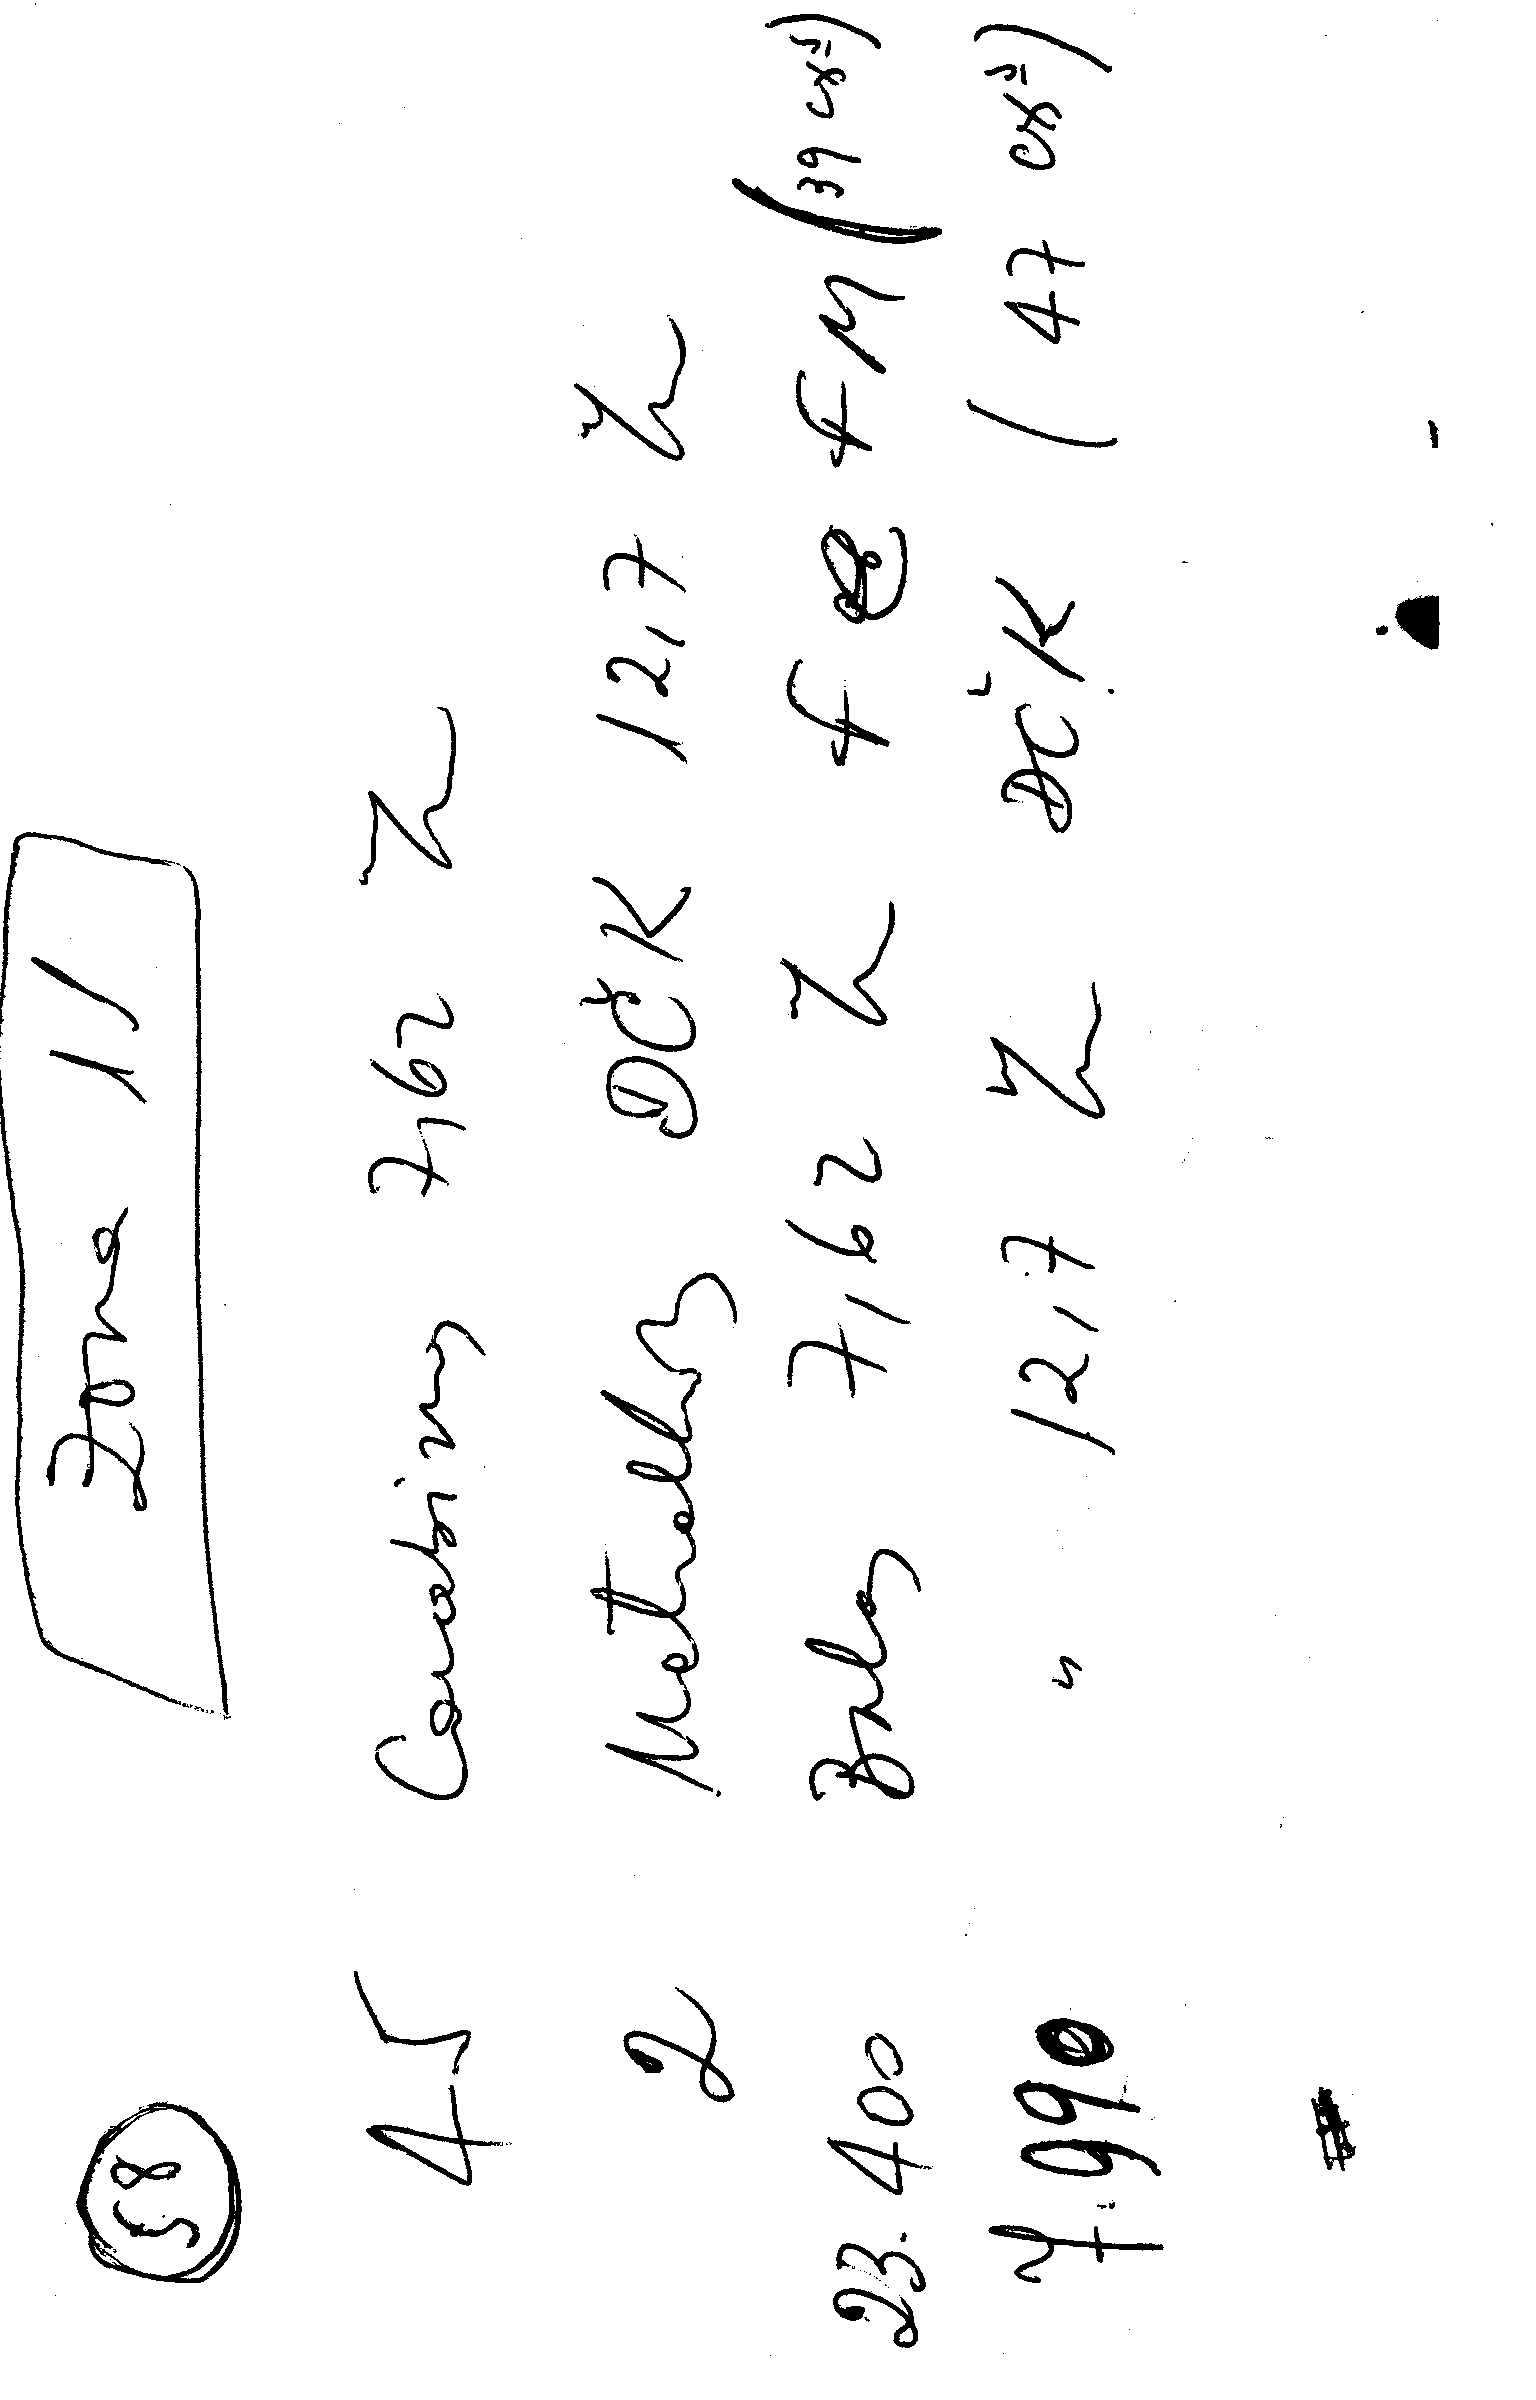 58 Zona 11
45 Carabinas 7,62 m/m
2 Metrallas DČK 12,7 m/m
23.400 Balas 7,62 m/m f f M (39 cxs)
7.990 " 12,7 m/m DČK (47 cxs)